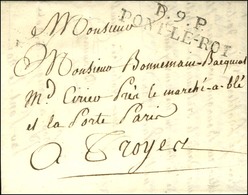 D. 9. P.
PONT-LE-ROI
Monsieur
Monsieur Bonnemain-Pacquiot
Md Cirier Près le marché-a-blé
et la Porte Paris
A Troyes